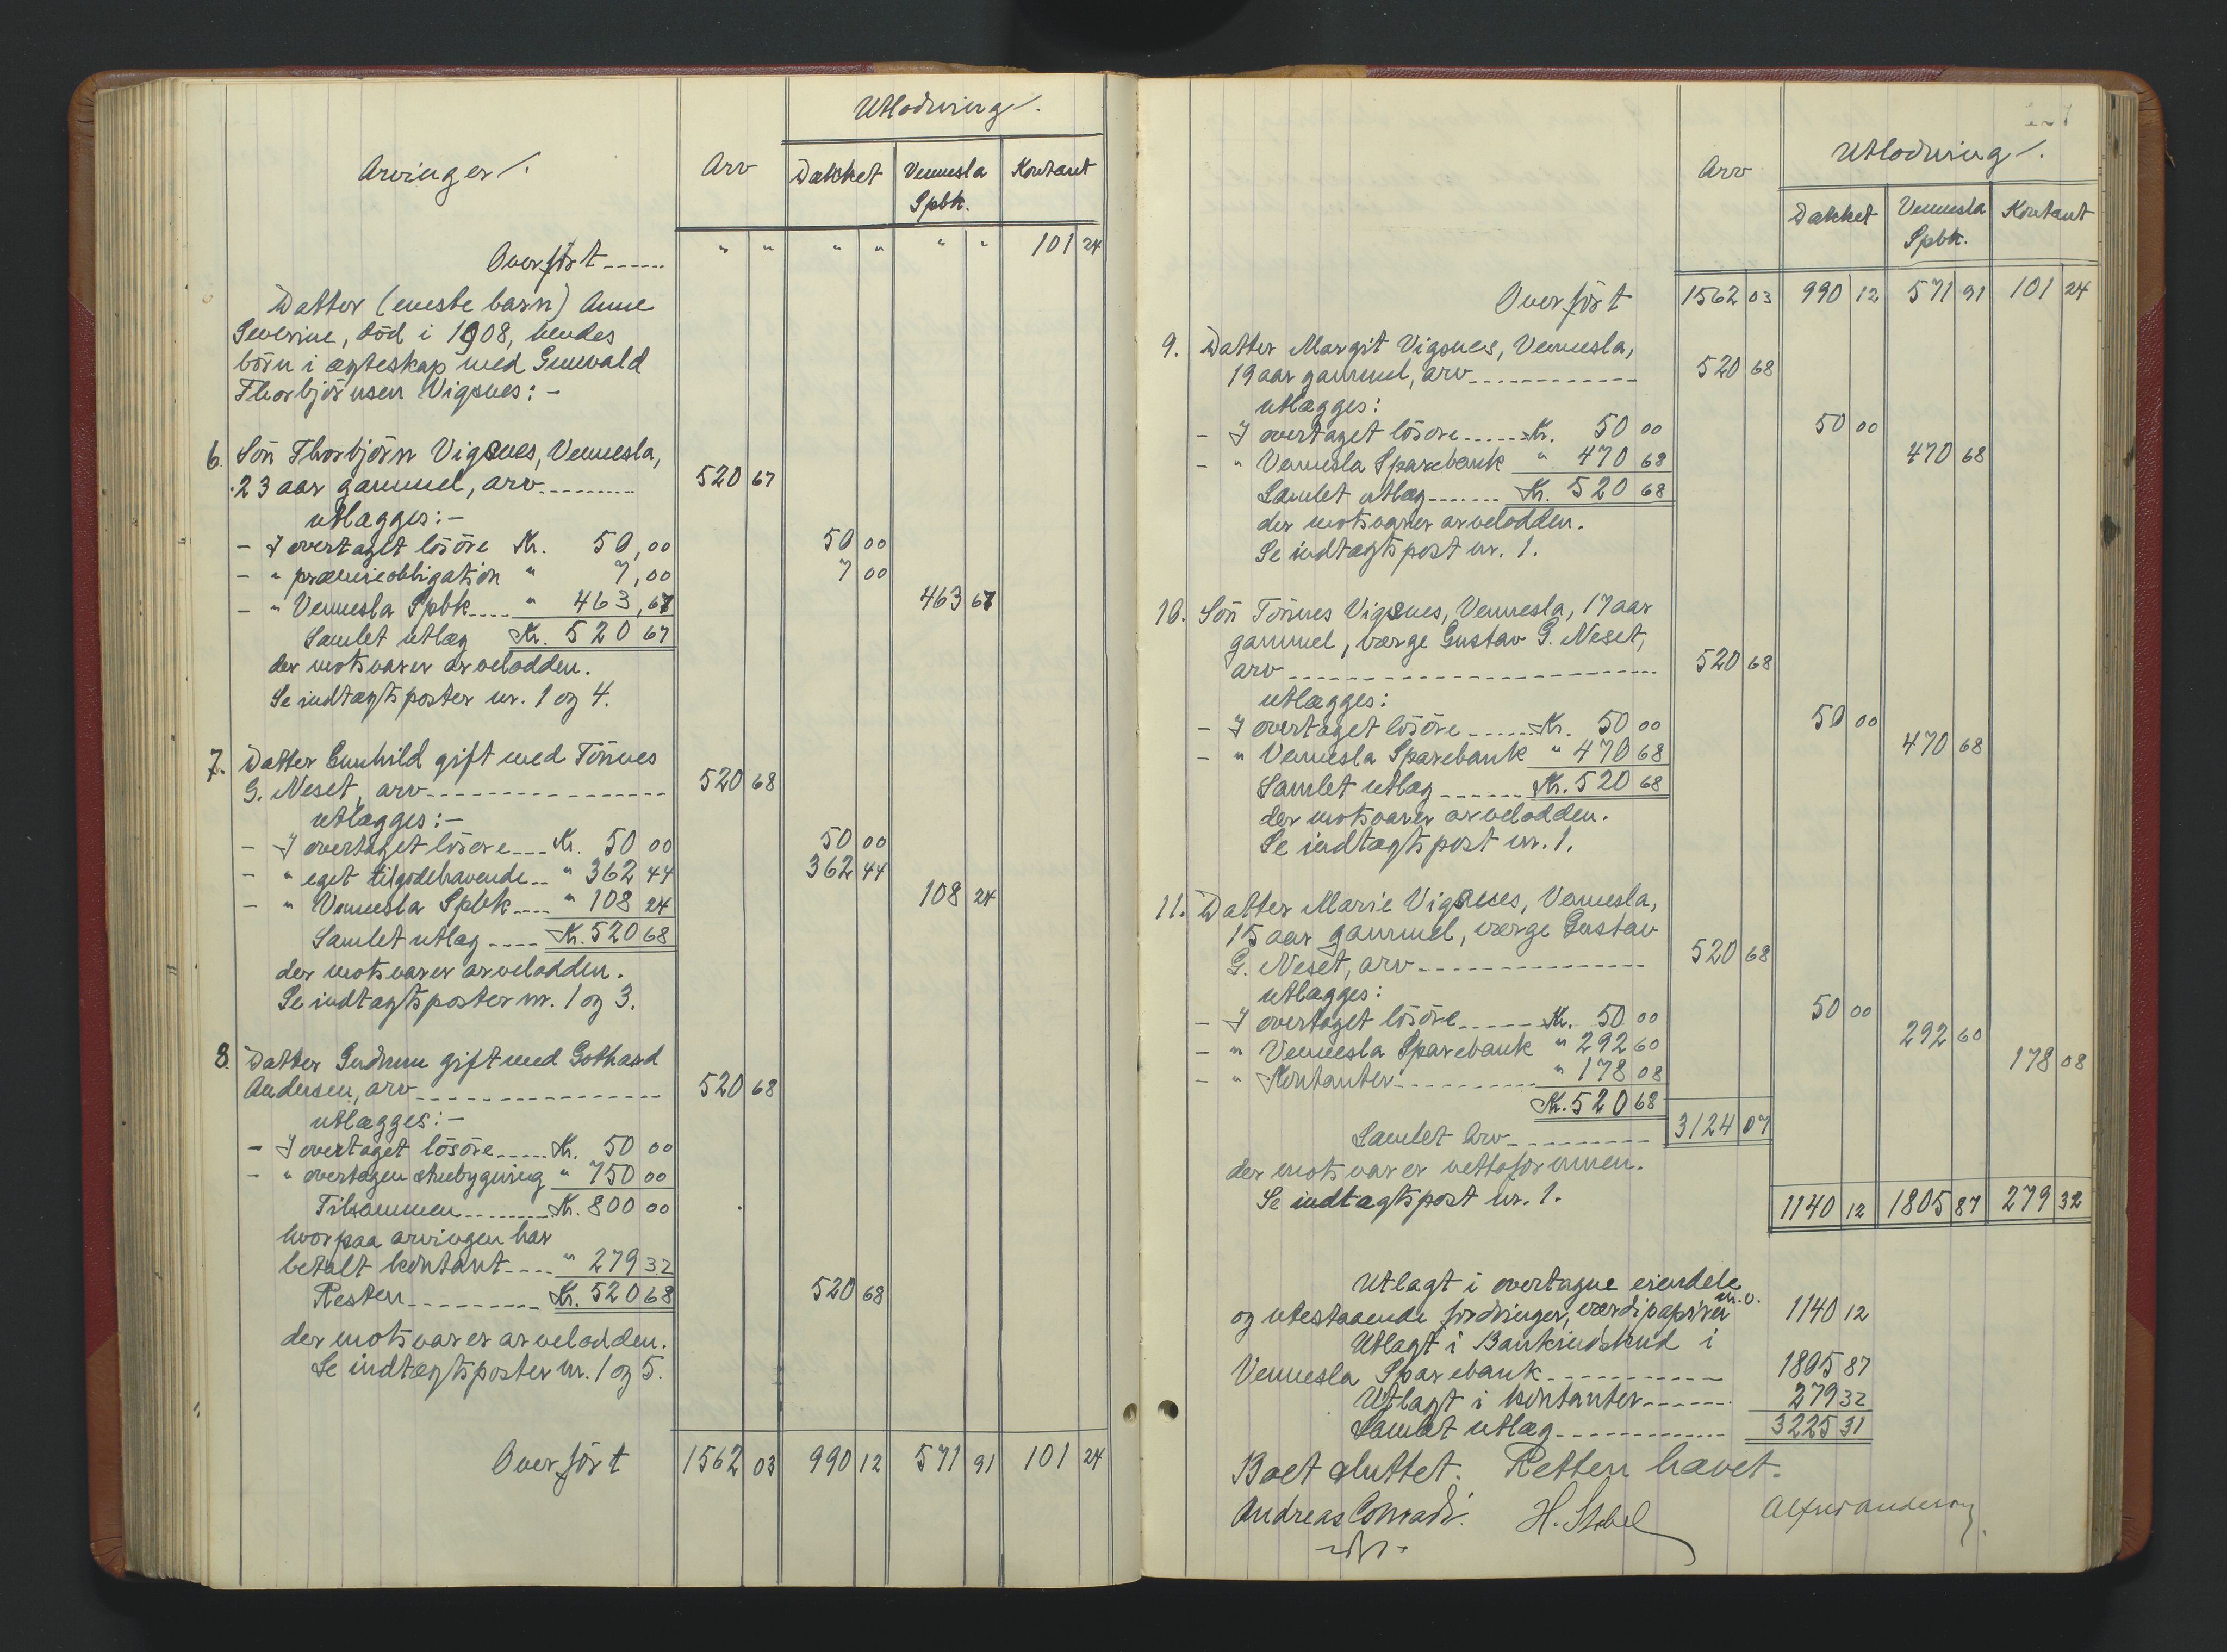 Utlodning.
Arvinger. Arv Dækket Vennesla Spbk. Kontant
Overført ...... " " " " " " 101 24
Datter (eneste barn) Anne
Severine, död i 1908, hendes
börn i ægteskap med Gunvald
Thorbjörnsen Vigsnes: -
6. Sön Thorbjörn Vigsnes, Vennesla,
23 aar gammel, arv ......... 520 67
utlægges: -
- I overtaget lösöre Kr. 50,00 50 00
- " præmieobligation " 7,00 7 00
- " Vennesla Spbk .... " 463,67 463 67
Samlet utlæg Kr. 520 67
der motsvarer arvelodden.
Se indtægtsposter nr. 1 og 4.
7. Datter Gunhild gift med Tönnes
G. Neset, arv ......... 520 68
utlægges: -
- I overtaget lösöre ... Kr. 50 00 50 00
- " eget tilgodehavende .. " 362 44 362 44
- " Vennesla Spbk .... " 108 24 108 24
Samlet utlæg .... Kr. 520 68
der motsvarer arvelodden.
Se indtægtsposter nr. 1 og 3.
8. Datter Gudrun gift med Gothard
Andersen, arv ......... 520 68
utlægges: -
- I overtaget lösöre ..... Kr. 50 00
- " overtagen stuebygning " 750 00
Tilsammen ......... Kr. 800 00
hvorpaa arvingen har
betalt kontant .... " 279 32
Resten ......... Kr. 520 68 520 68
der motsvarer arvelodden.
Se indtægtsposter nr. 1 og 5.
Overfört 1562 03 990 12 571 91 101 24
Utlodning.
Arv Dækket Vennesla Spbk. Kontant
Overfört 1562 03 990 12 571 91 101 24
9. Datter Margit Vigsnes, Vennesla,
19 aar gammel, arv ......... 520 68
utlægges:
- I overtaget lösöre ...... Kr. 50 00 50 00
- " Vennesla Sparebank " 470 68 470 68
Samlet utlæg ....... Kr. 520 68
der motsvarer arvelodden.
Se indtægtspost nr. 1.
10. Sön Tönnes Vigsnes, Vennesla, 17 aar
gammel, værge Gustav G. Neset,
arv ......... 520 68
utlægges:
- I overtaget lösöre ...... Kr. 50 00 50 00
- " Vennesla Sparebank " 470 68 470 68
Samlet utlæg ...... Kr. 520 68
der motsvarer arvelodden.
Se indtægtspost nr. 1.
11. Datter Marie Vigsnes, Vennesla,
15 aar gammel, værge Gustav
G. Neset, arv ......... 520 68
utlægges:
- I overtaget lösöre ...... Kr. 50 00 50 00
- " Vennesla Sparebank " 292 60 292 60
- " Kontanter ......... " 178 08 178 08
Kr. 520 68
Samlet Arv ......... 3124 07
der motsvarer nettoformuen.
Se indtægtspost nr. 1.
1140 12 1805 87 279 32
Utlagt i overtagne eiendele
og utestaaende fordringer, værdipapirer m.v. 1140 12
Utlagt i Bankindskud i
Vennesla Sparebank ......... 1805 87
Utlagt i kontanter ....... 279 32
Samlet utlæg ......... 3225 31
Boet sluttet. Retten hævet.
Andreas Conradi. H. Stabel Alfred Andersen